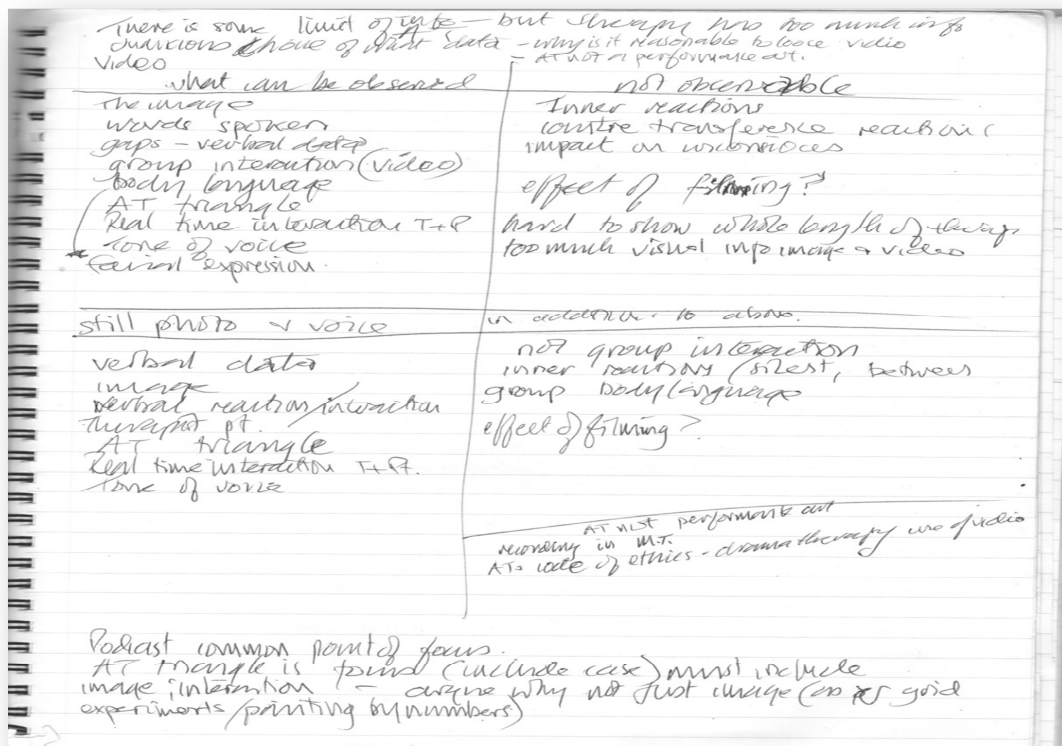 There is some limit of info - but therapy has too much info
Judicious choice of what data - why is it reasonable to loose video
Video
- AT not a performance art.
what can be observed
not observable
The image
words spoken
gaps - verbal data
group interaction (video)
body language
AT triangle
Real time interaction T+P
Tone of voice
facial expression.
Inner reactions
countre transference reactions
impact on unconsioces
effect of filming?
hard to show whole length of therapy
too much visual info image + video
still photo + voice
in addition to above.
verbal data
image
verbal reaction/interaction
Therapist pt.
AT triangle
Real time interaction T+Pt.
Tone of voice
not group interaction
inner reactions (silest, between
group body language
effect of filming?
AT not performance art
recording in M.T.
ATs code of ethics - dramatherapy use of video
Podcast common point of focus.
AT triangle is found (include case) must include
image, interaction - argue why not just image (as
experiments/painting by numbers)